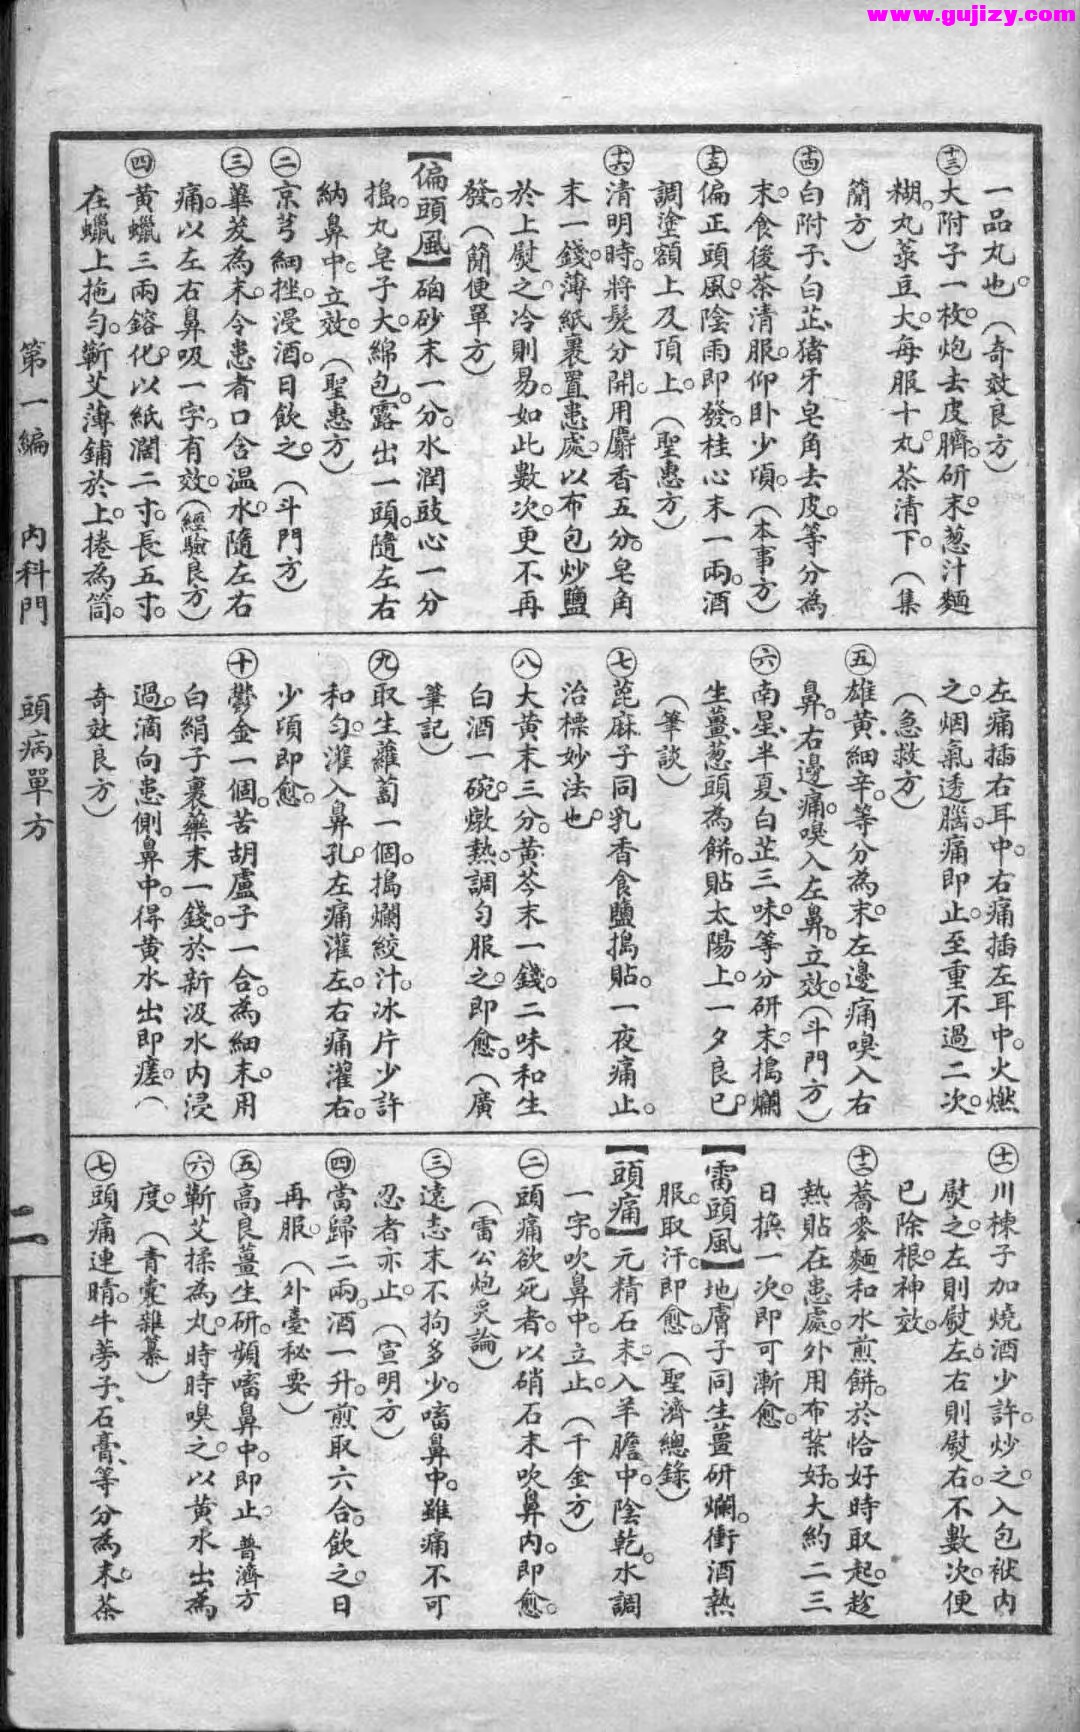 www.gujizy.com
一品丸也。（奇效良方）
⑬大附子一枚。炮去皮臍。研末。葱汁麵
糊。丸菉豆大。每服十丸。茶清下。（集
簡方）
⑭白附子、白芷、猪牙皂角去皮。等分為
末。食後茶清服。仰卧少頃。（本事方）
⑮偏正頭風。陰雨即發。桂心末一兩。酒
調塗額上及頂上。（聖惠方）
⑯清明時。將髮分開。用麝香五分。皂角
末一錢。薄紙裹置患處。以布包炒鹽
於上熨之。冷則易。如此數次。更不再
發。（簡便單方）
【偏頭風】硇砂末一分。水潤豉心一分
搗。丸皂子大。綿包。露出一頭。隨左右
納鼻中。立效。（聖惠方）
㊁京芎細挫。浸酒。日飲之。（斗門方）
㊂蓽茇為末。令患者口含温水。隨左右
痛。以左右鼻吸一字。有效。（經驗良方）
㊃黃蠟三兩鎔化。以紙濶二寸。長五寸。
在蠟上拖勻。蘄艾薄鋪於上。捲為筒。
左痛插右耳中。右痛插左耳中。火燃
之。烟氣透腦。痛即止。至重不過二次。
（急救方）
㊄雄黃、細辛。等分為末。左邊痛嗅入右
鼻。右邊痛。嗅入左鼻。立效。（斗門方）
㊅南星、半夏、白芷三味。等分研末。搗爛
生薑、葱頭為餅。貼太陽上。一夕良已。
（筆談）
㊆蓖麻子同乳香食鹽搗貼。一夜痛止。
治標妙法也。
㊇大黃末三分。黃芩末一錢。二味和生
白酒一碗。燉熱。調勻服之。即愈。（廣
筆記）
㊈取生蘿蔔一個。搗爛絞汁。冰片少許
和勻。灌入鼻孔。左痛灌左。右痛灌右。
少頃即愈。
㊉鬱金一個。苦胡盧子一合。為細末。用
白絹子裹藥末一錢。於新汲水內浸
過。滴向患側鼻中。得黃水出即瘥。（
奇效良方）
⑪川楝子加燒酒少許。炒之。入包袱內
熨之。左則熨左。右則熨右。不數次。便
已除根。神效。
⑫蕎麥麵和水煎餅。於恰好時取起。趁
熱貼在患處。外用布紮好。大約二三
日換一次。即可漸愈。
【雷頭風】地膚子同生薑研爛。衝酒熱
服。取汗即愈。（聖濟總錄）
【頭痛】元精石末。入羊膽中。陰乾。水調
一字。吹鼻中。立止。（千金方）
㊁頭痛欲死者。以硝石末吹鼻內。即愈。
（雷公炮炙論）
㊂遠志末不拘多少。㗜鼻中。雖痛不可
忍者亦止。（宣明方）
㊃當歸二兩。酒一升。煎取六合。飲之。日
再服。（外臺秘要）
㊄高良薑生研。頻㗜鼻中。即止。普濟方
㊅蘄艾揉為丸。時時嗅之。以黃水出為
度。（青囊雜纂）
㊆頭痛連睛。牛蒡子、石膏、等分為末。茶
第一編 內科門 頭病單方
二